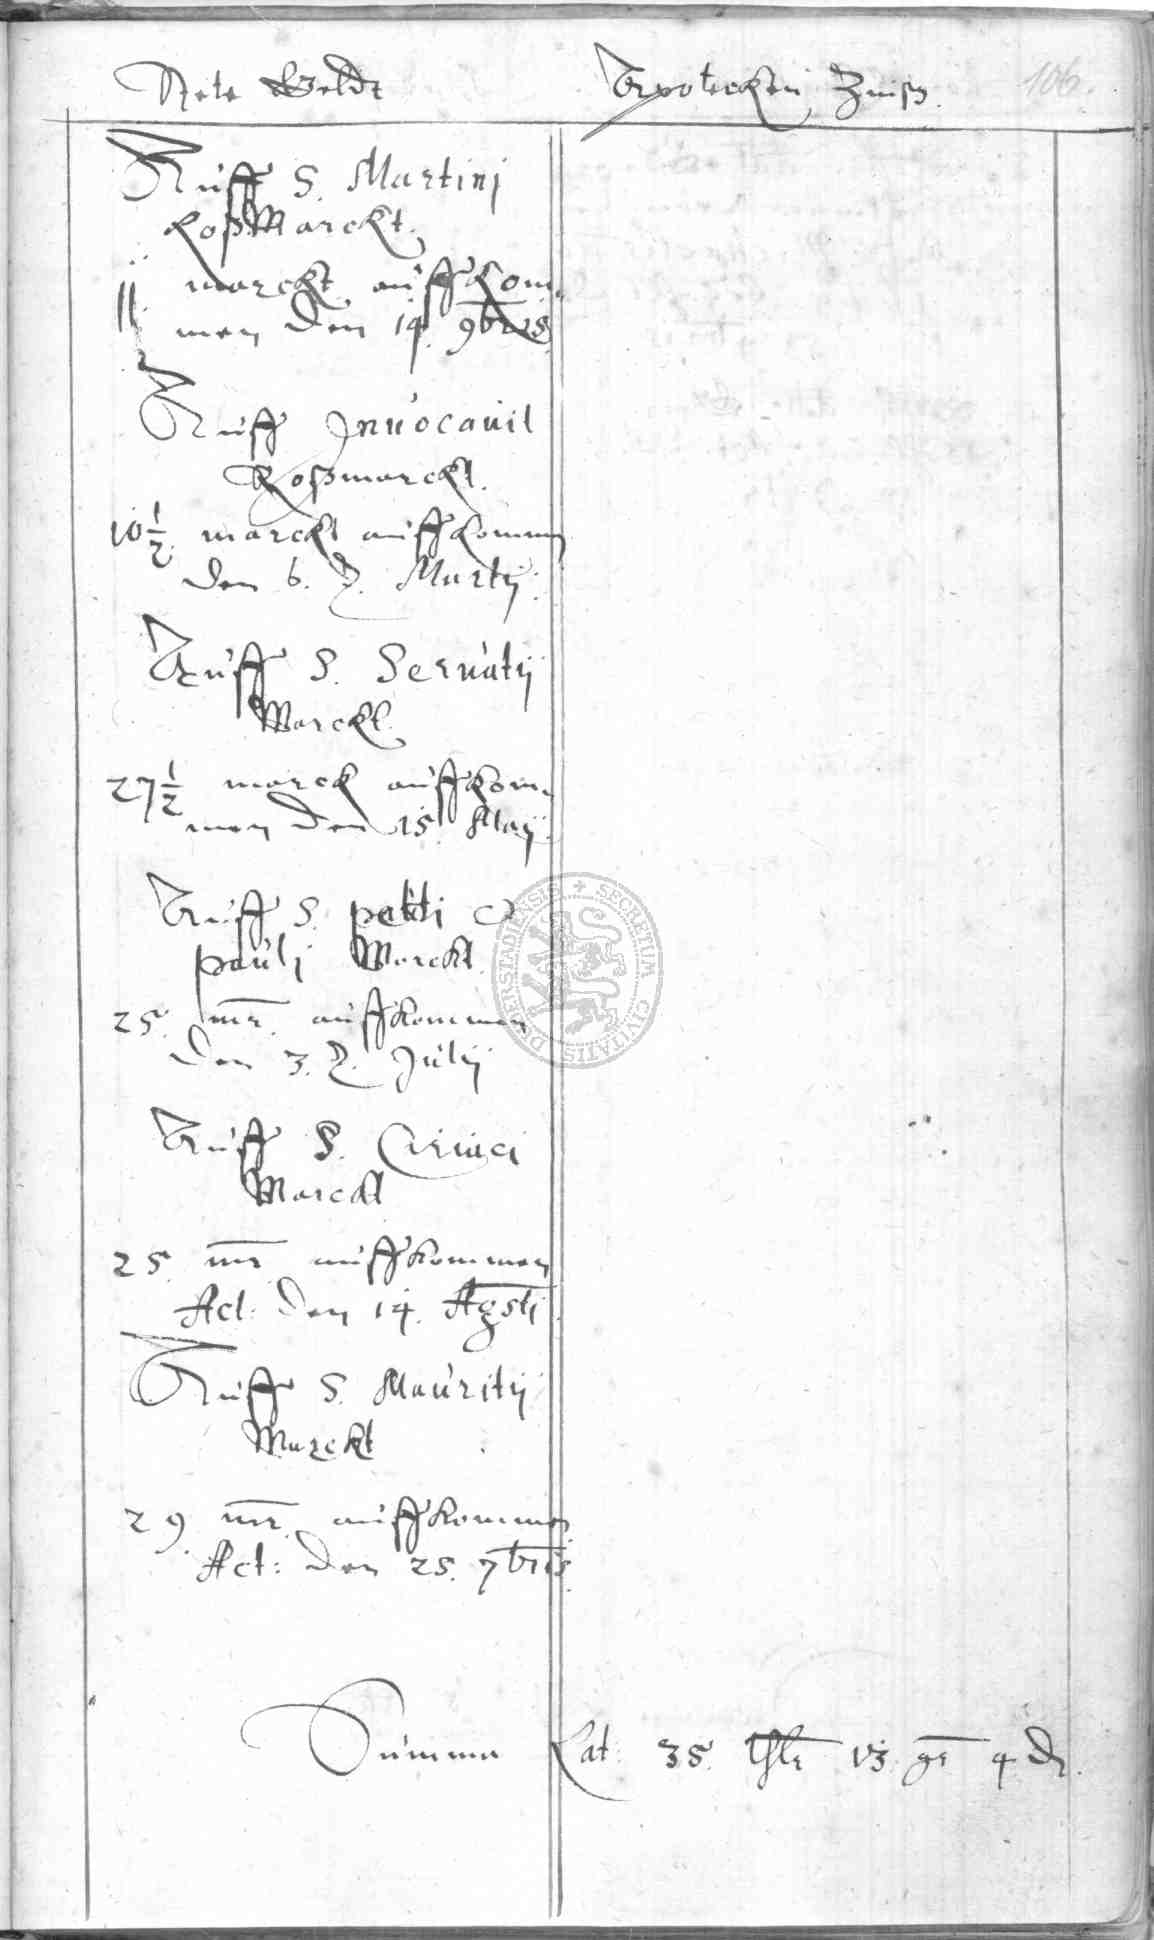 Stete Geldt
Apotecken Zinß
106.
Auff S. Martinj
RoßMarckt.
11 marckt auffkom
men den 14. 9bris
Auff Inuocauit
Roßmarckt.
10 1/2 marckt auffkommen
den 6. Martij.
Auff S. Seruatij
Marckt.
27 1/2 marck auffkom
men den 15. Maij
Auff S. petri
pauli Marckt
25. mr. auffkommen
den 3. Julij
Auff S. Ciriaci
Marckt
25. mr auffkommen
Act: den 14. Agsti
Auff S. Mauritij
Marckt
29. mr. auffkommen
Act: den 25. 7bris
Summa Lat: 35. thlr 13 gr 4 d.
SECRETUM CIVITATIS DUDERSTADIENSIS